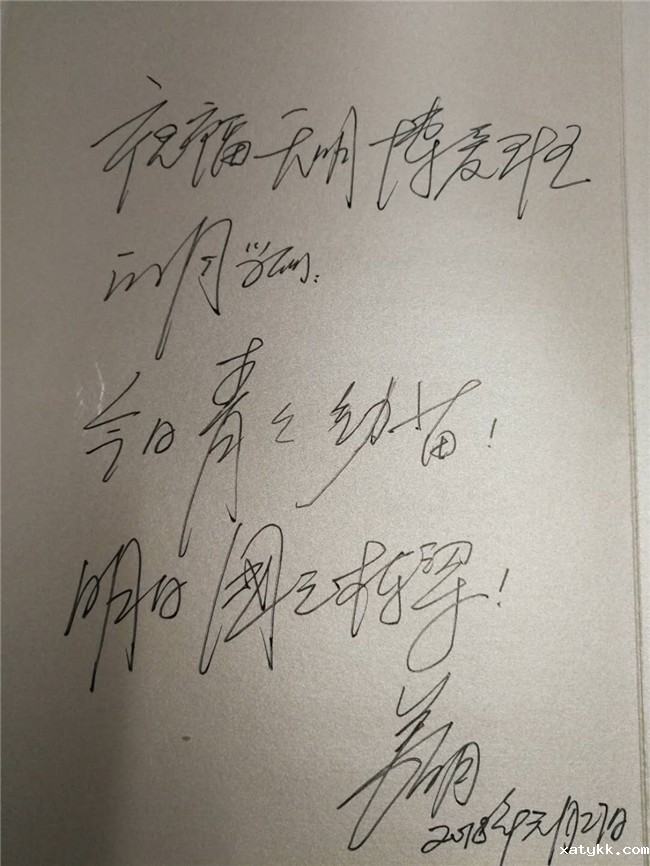 祝福天明博爱班
的同学们:
今日青青幼苗!
明日国之栋梁!
2018年元月27日
xatykk.com